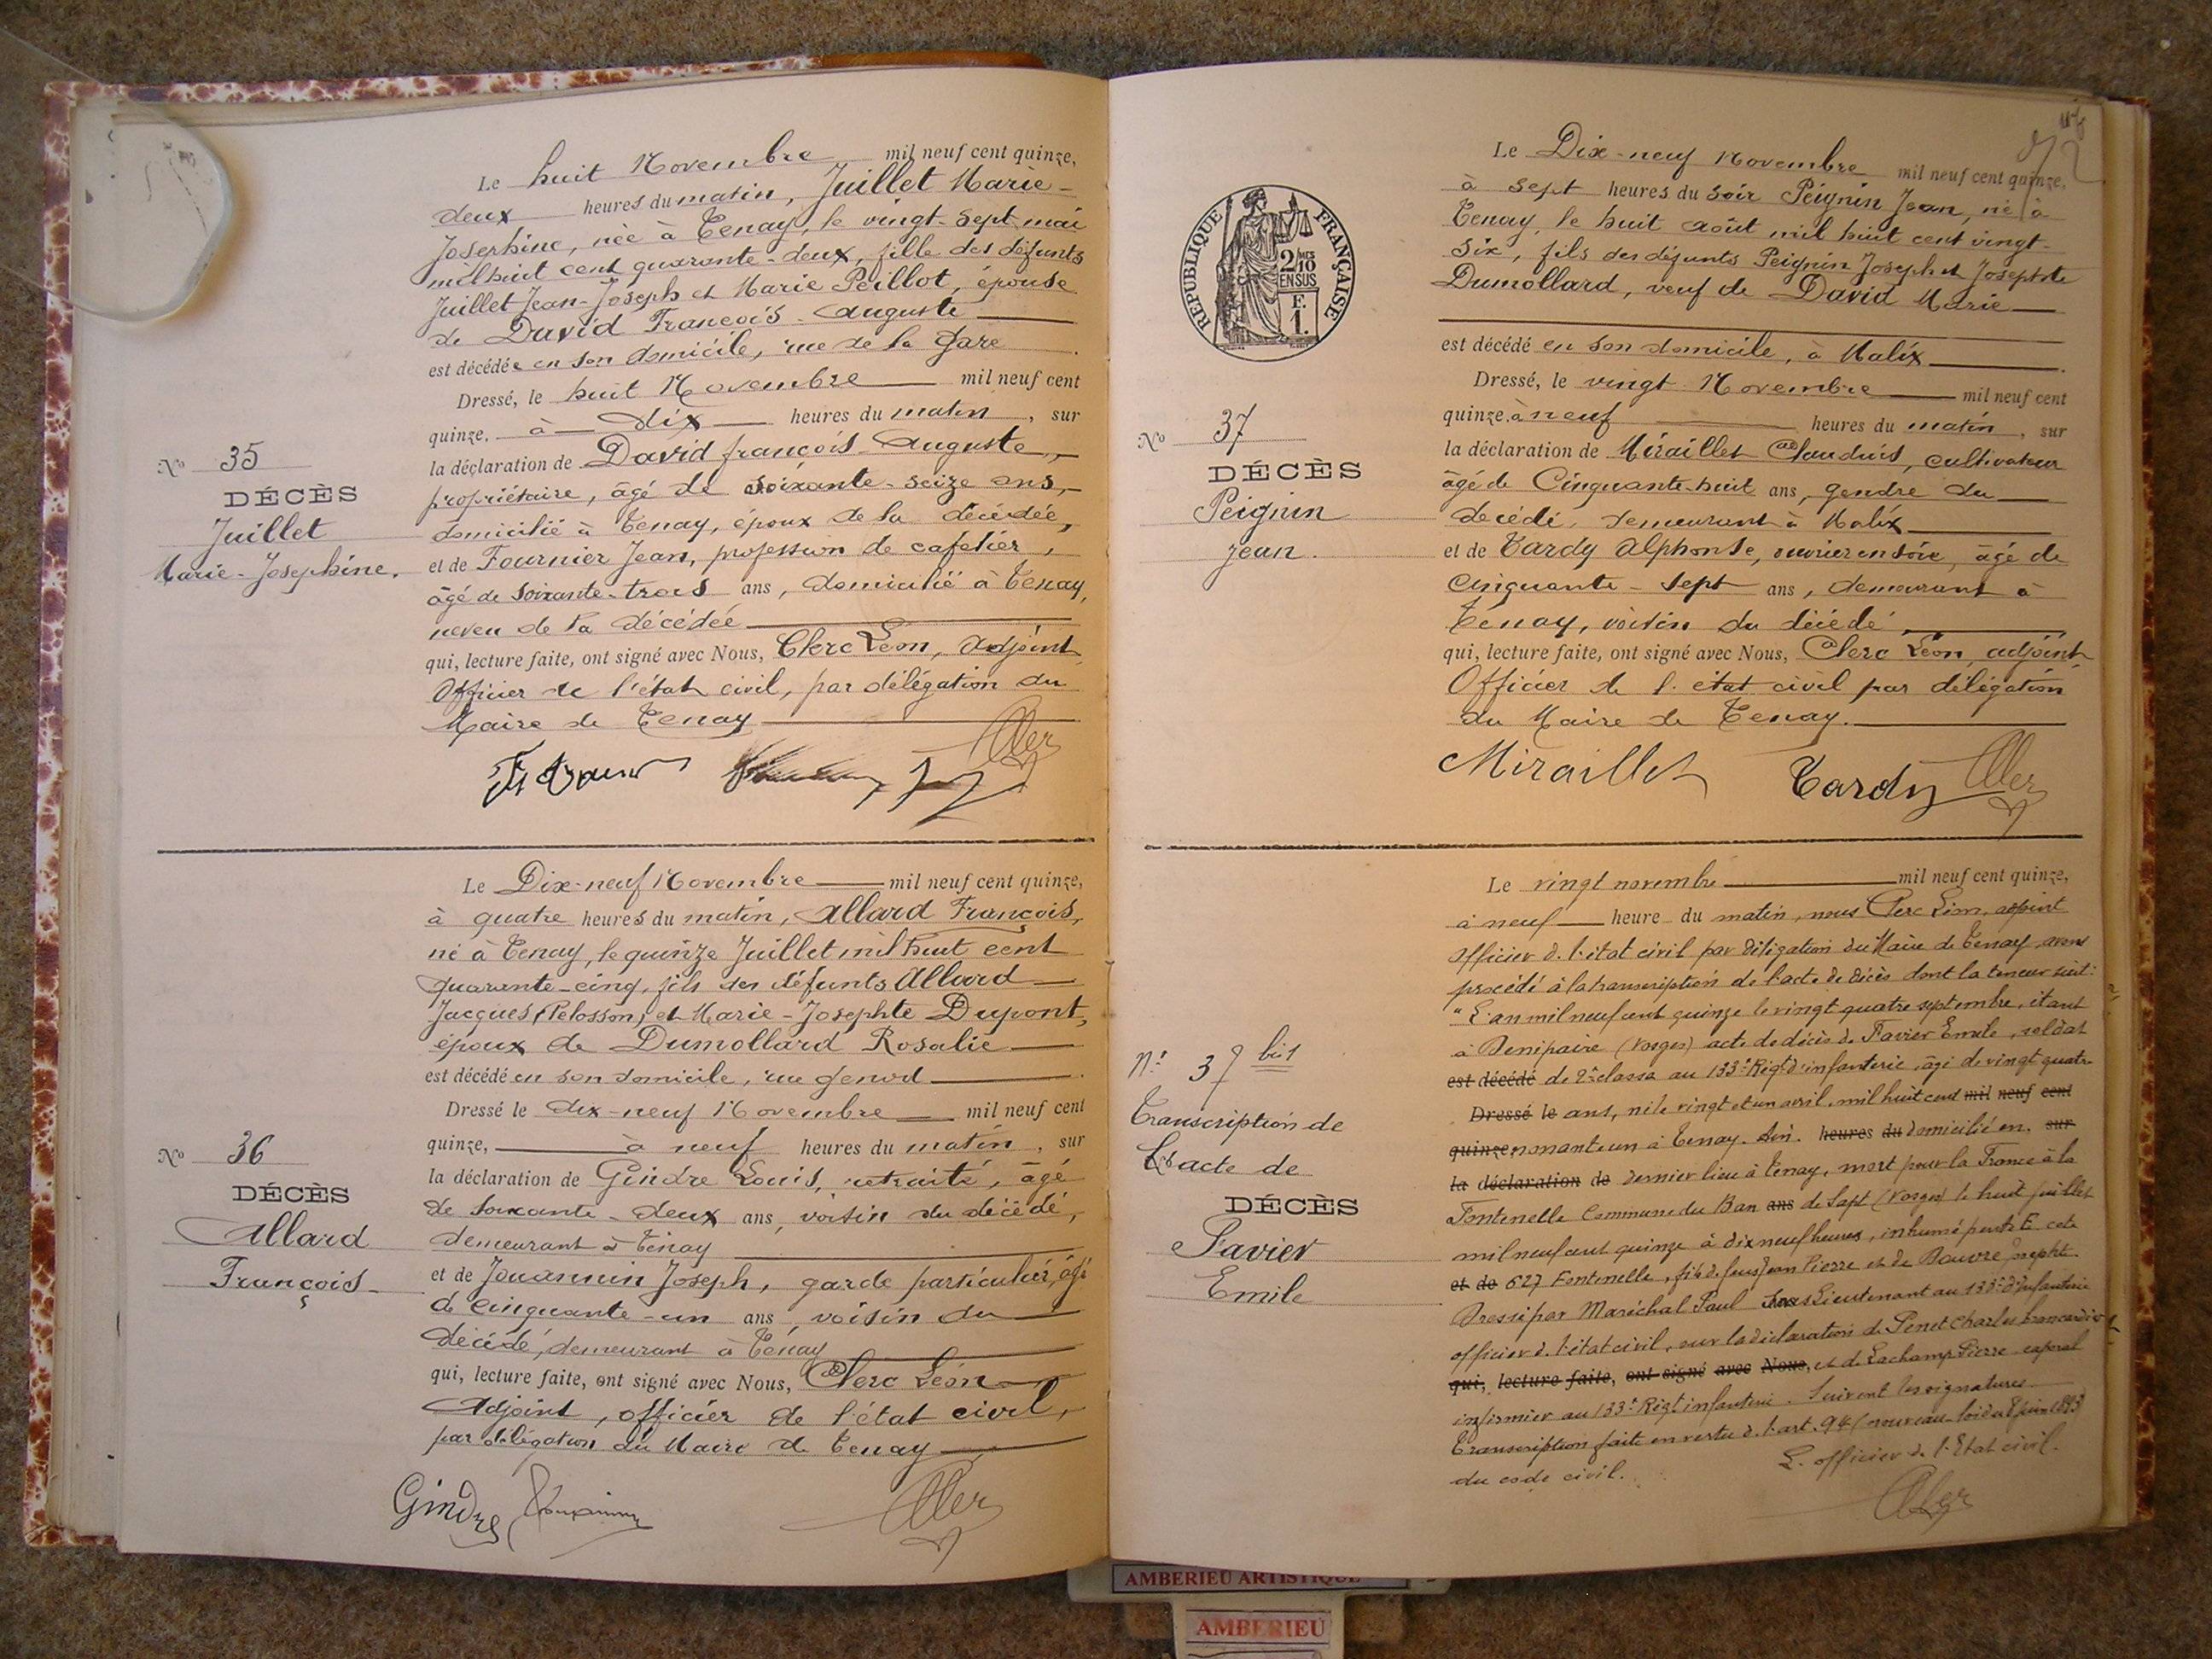 Le huit Novembre mil neuf cent quinze,
deux heures du matin, Juillet Marie-
Josephine, née à Tenay, le vingt-sept mai
mil huit cent quarante-deux, fille des défunts
Juillet Jean-Joseph et Marie Peillot, épouse
de David François-Auguste
est décédée en son domicile, rue de la Gare
Dressé, le huit Novembre mil neuf cent
quinze, à dix heures du matin, sur
la déclaration de David françois-Auguste,
propriétaire, âgé de soixante-seize ans,
domicilié à Tenay, époux de la décédée,
et de Fournier Jean, profession de cafetier,
âgé de soixante-trois ans, domicilié à Tenay,
neveu de la décédée
qui, lecture faite, ont signé avec Nous, Clerc Léon, adjoint
Officier de l'état civil, par délégation du
Maire de Tenay
No 35
DÉCÈS
Juillet
Marie-Josephine.
Le Dix-neuf Novembre mil neuf cent quinze,
à quatre heures du matin, Allard François,
né à Tenay, le quinze Juillet mil huit cent
quarante-cinq, fils des défunts Allard
Jacques (Pelosson) et Marie-Josephte Dupont,
époux de Dumollard Rosalie
est décédé en son domicile, rue Genod
Dressé le dix-neuf Novembre mil neuf cent
quinze, à neuf heures du matin, sur
la déclaration de Gindre Louis, retraité, âgé
de soixante-deux ans, voisin du décédé,
demeurant à Tenay
et de Jouannin Joseph, garde particulier, âgé
de cinquante-un ans, voisin du
décédé, demeurant à Tenay
qui, lecture faite, ont signé avec Nous, Clerc Léon
Adjoint, officier de l'état civil,
par délégation du Maire de Tenay
Gindre
No 36
DÉCÈS
Allard
François
REPUBLIQUE FRANÇAISE
2/10
MES
EN SUS
F.
1.
Le Dix-neuf Novembre mil neuf cent quinze,
à sept heures du soir Peignin Jean, né à
Tenay, le huit août mil huit cent vingt-
six, fils des défunts Peignin Joseph et Josephte
Dumollard, veuf de David Marie
est décédé en son domicile, à Malix
Dressé, le vingt Novembre mil neuf cent
quinze, à neuf heures du matin, sur
la déclaration de Miraillet Claudius, cultivateur
âgé de Cinquante-huit ans, gendre du
décédé, demeurant à Malix
et de Tardy Alphonse, ouvrier en soie, âgé de
Cinquante-sept ans, demeurant à
Tenay, voisin du décédé,
qui, lecture faite, ont signé avec Nous, Clerc Léon, adjoint
Officier de l'état civil par délégation
du Maire de Tenay.
Miraillet Tardy
No 37
DÉCÈS
Peignin
Jean.
Le vingt novembre mil neuf cent quinze,
à neuf heure du matin, nous Clerc Léon, adjoint
officier de l'état civil par délégation du Maire de Tenay avons
procédé à la transcription de l'acte de décès dont la teneur suit:
"L'an mil neuf cent quinze le vingt quatre septembre, étant
à Denipaire (Vosges) acte de décès de Favier Emile, soldat
est décédé de 2e classe au 133e Régt d'infanterie, âgé de vingt quatre
Dressé le ans, né le vingt et un avril mil huit cent mil neuf cent
quinze nonante un à Tenay. Ain. heures du domicilié en sur
la déclaration de dernier lieu à Tenay, mort pour la France à la
Fontenelle Commune du Ban ans de Sapt (Vosges) le huit juillet
mil neuf cent quinze à dix neuf heures, inhumé pente E cote
et de 627 Fontenelle, fils de feus Jean Pierre et de Josephte
Dressé par Maréchal Paul Sous Lieutenant au 133e d'Infanterie
officier de l'état civil, sur la déclaration de Penet Charles brancardier
qui, lecture faite, ont signé avec Nous, et de Lachamp Pierre caporal
infirmier au 133e Régt infanterie. Suivent les signatures.
Transcription faite en vertu de l'art. 94 (nouveau loi du 8 juin 1893)
du code civil. L'officier de l'Etat civil.
No 37 bis
Transcription de
L'acte de
DÉCÈS
Favier
Emile
AMBERIEU ARTISTIQUE
AMBERIEU